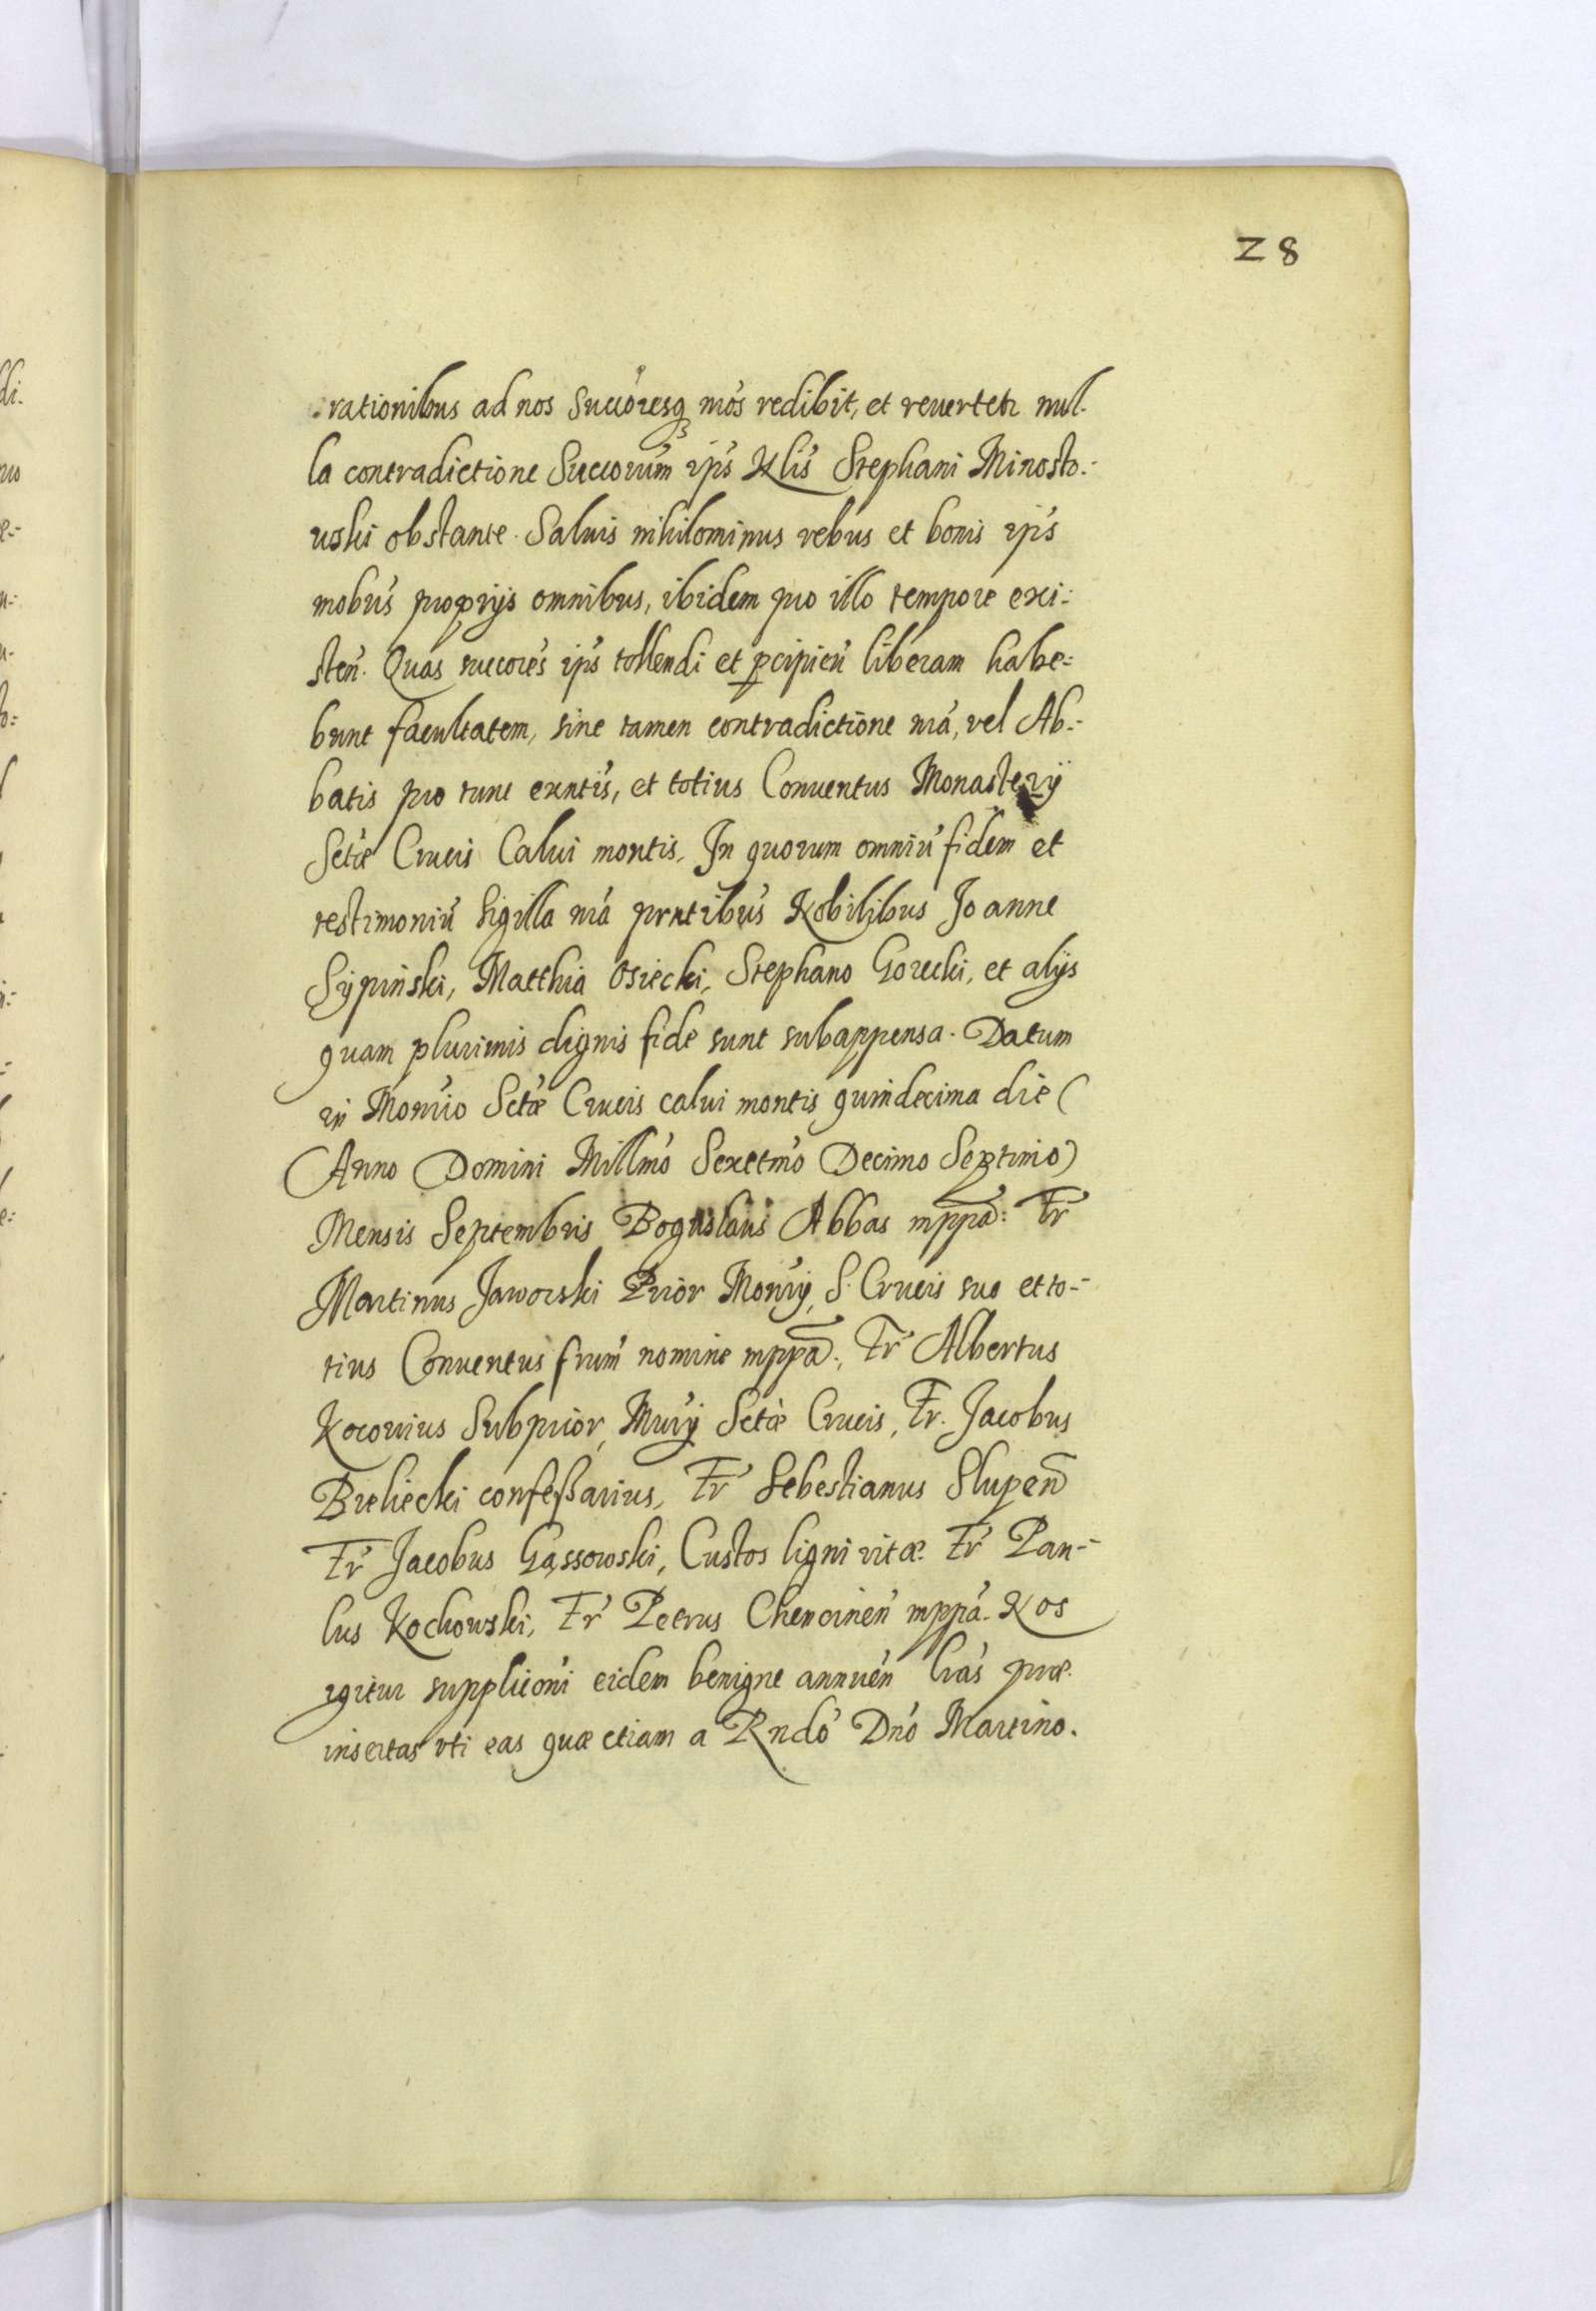 28
rationibus ad nos Succoresq nros redibit, et reuertetr nul-
la contradictione Succorum ips Nlis Stephani Minosto-
uski obstante. Saluis nihilominus rebus et bonis ips
mobus proprijs omnibus, ibidem pro illo tempore exi-
sten. Quas succores ips tollendi et pcipien liberam habe=
bunt facultatem, sine tamen contradictione nra, vel Ab=
batis pro tunc exntis, et totius Conuentus Monasterij
Sctæ Crucis Calui montis. In quorum omniu fidem et
testimoniu Sigilla nra prntibus Nobilibus Joanne
Sypiński, Matthia Osiecki, Stephano Gorecki, et alijs
quam plurimis dignis fide sunt subappensa. Datum
in Monrio Sctæ Crucis calui montis quindecima die
(Anno Domini Millmo Sexctmo Decimo Septimo)
Mensis Septembris Boguslaus Abbas mppa: Fr
Martinus Jaworski Prior Monrij, S. Crucis suo et to=
tius Conuentus frum nomine mppa., Fr Albertus
Kocouius Subprior, Mnrij Sctæ Crucis, Fr. Jacobus
Bieliecki confeßarius, Fr Sebestianus Slupen
Fr Jacobus Gąssowski, Custos ligni vitæ. Fr Pau=
lus Kochowski, Fr Petrus Chencinen mppa. Nos
igitur suppliconi eidem benigne annuen lras præ
insertas vti eas quæ etiam a Rndo Dno Martino.